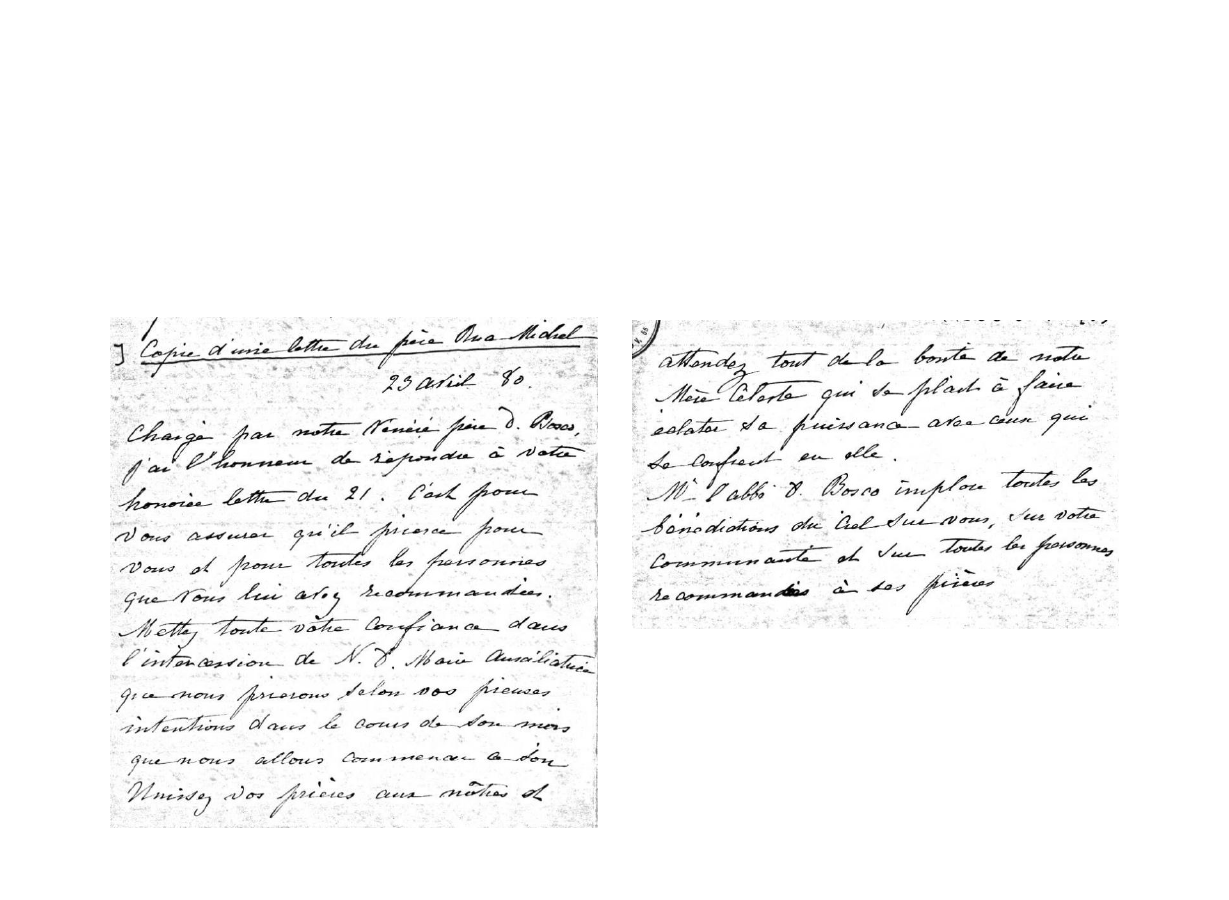 ] Copie d'une lettre du père Rua Michel
23 avril 80.
Chargé par notre Vénéré père D. Bosco,
j'ai l'honneur de répondre à votre
honorée lettre du 21. C'est pour
vous assurer qu'il priera pour
vous et pour toutes les personnes
que vous lui avez recommandées.
Mettez toute vôtre confiance dans
l'intercession de N. D. Marie Auxiliatrice
que nous prierons selon vos pieuses
intentions dans le cours de son mois
que nous allons commencer
Unissez vos prières aux nôtres et
attendez tout de la bonté de notre
Mère Céleste qui se plait à faire
éclater sa puissance avec ceux qui
se confient en elle.
Mr l'abbé D. Bosco implore toutes les
bénédictions du Ciel sur vous, sur votre
communauté et sur toutes les personnes
recommandées à ses prières